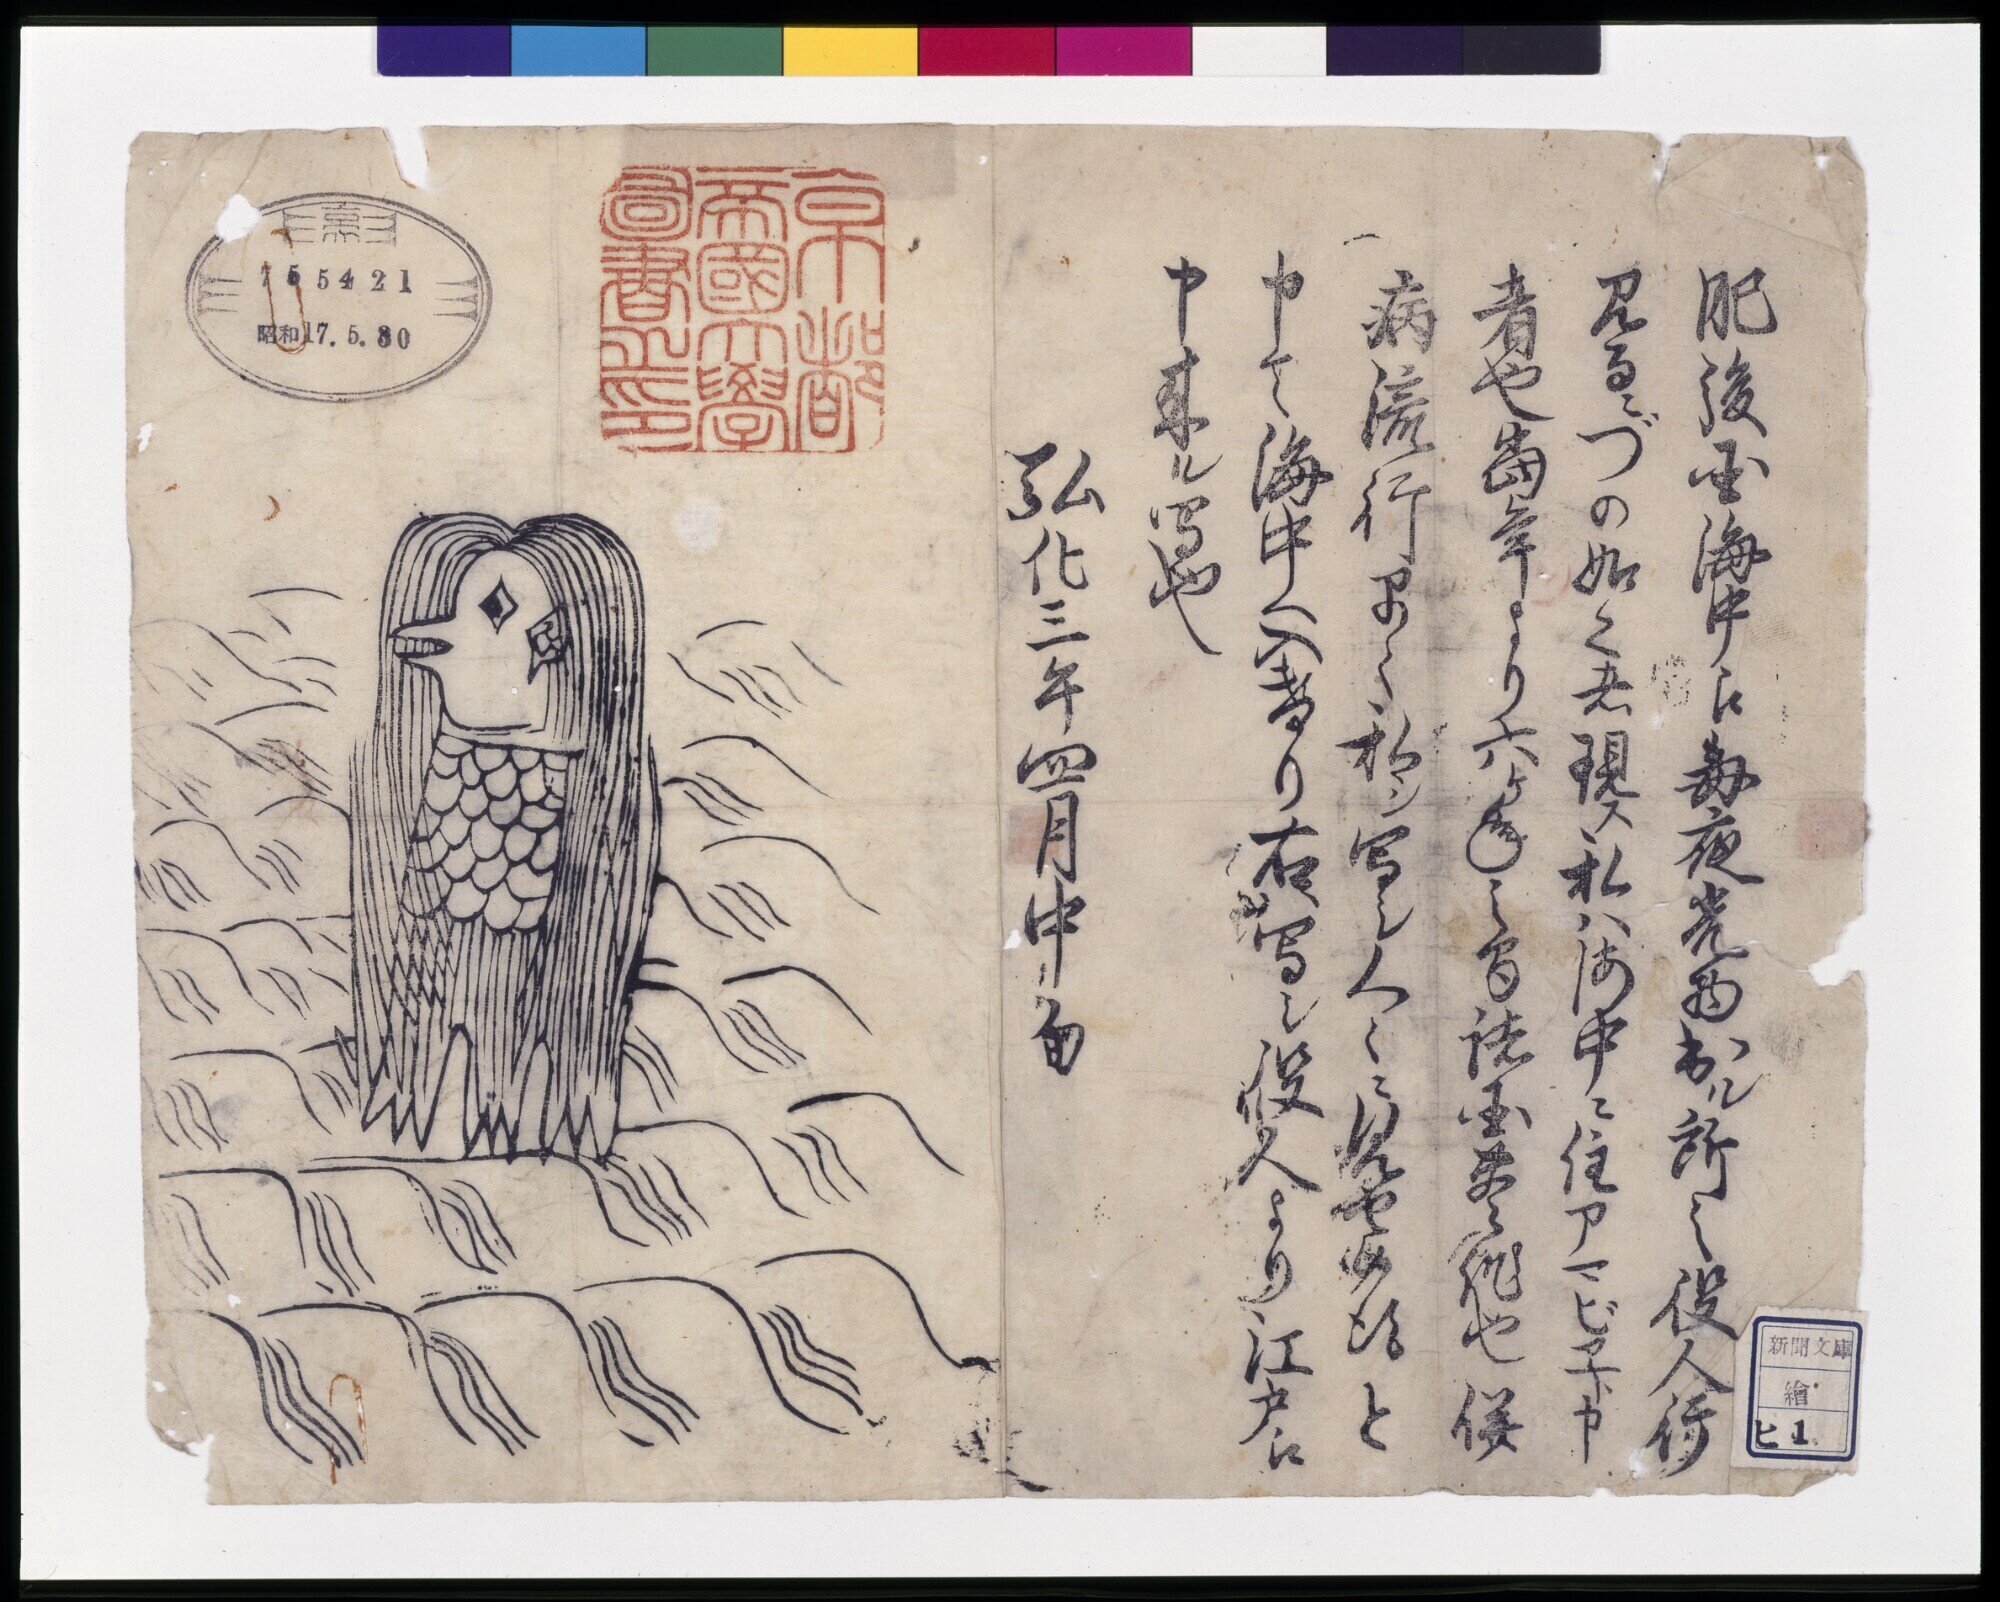 肥後国海中え毎夜光物出ル所之役人行
見るニづの如く者現ス私ハ海中ニ住アマビヱト申
者也当年より六ヶ年之間諸国豊作也併
病流行早々私シ写シ人々ニ見セ候得と
申て海中へ入けり右写シ役人より江戸え
申来ル写也
弘化三年四月中旬
京都
帝國大學
圖書之印
755421
昭和17.5.30
新聞文庫
繪
ヒ 1